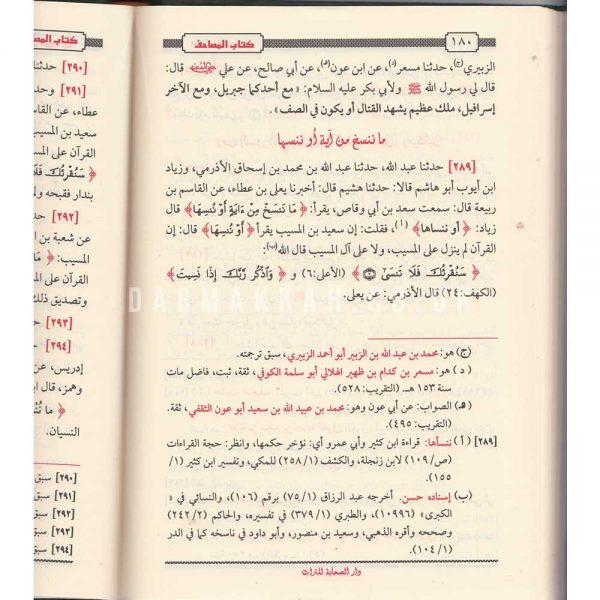 كتاب المصاحف
١٨٠
الزبيري(ج)، حدثنا مسعر(د)، عن ابن عون(هـ)، عن أبي صالح، عن علي رضي الله عنه قال:
قال لي رسول الله ﷺ ولأبي بكر عليه السلام: «مع أحدكما جبريل، ومع الآخر
إسرافيل، ملك عظيم يشهد القتال أو يكون في الصف».
ما ننسخ من آية أو ننسها
[٢٨٩] حدثنا عبد الله، حدثنا عبد الله بن محمد بن إسحاق الأذرمي، وزياد
ابن أيوب أبو هاشم قالا: حدثنا هشيم قال: أخبرنا يعلى بن عطاء، عن القاسم بن
ربيعة قال: سمعت سعد بن أبي وقاص، يقرأ: ﴿مَا نَنسَخْ مِنْ ءَايَةٍ أَوْ نُنسِهَا﴾ قال
زياد: ﴿أو ننساها﴾(أ)، فقلت: إن سعيد بن المسيب يقرأ ﴿أَوْ نُنسِهَا﴾ قال: إن
القرآن لم ينزل على المسيب، ولا على آل المسيب قال الله(ب):
﴿سَنُقْرِئُكَ فَلَا تَنسَىٰٓ﴾ (الأعلى:٦) و ﴿وَٱذْكُر رَّبَّكَ إِذَا نَسِيتَ﴾
(الكهف:٢٤) قال الأذرمي: عن يعلى.
DARMAKKAH.CO.UK
(ج) هو: محمد بن عبد الله بن الزبير أبو أحمد الزبيري، سبق ترجمته.
(د) هو: مسعر بن كدام بن ظهير الهلالي أبو سلمة الكوفي، ثقة، ثبت، فاضل مات
سنة ١٥٣ هـ. (التقريب: ٥٢٨).
(هـ) الصواب: عن أبي عون وهو: محمد بن عبيد الله بن سعيد أبو عون الثقفي، ثقة.
(التقريب: ٤٩٥).
[٢٨٩] (أ) ننسأها: قراءة ابن كثير وأبي عمرو أي: نؤخر حكمها، وانظر: حجة القراءات
(ص/١٠٩) لابن زنجلة، والكشف (٢٥٨/١) للمكي، وتفسير ابن كثير (١/
١٥٥).
(ب) إسناده حسن. أخرجه عبد الرزاق (٧٥/١) برقم (١٠٦)، والنسائي في «
الكبرى» (١٠٩٩٦)، والطبري (٣٧٩/١) في تفسيره، والحاكم (٢٤٢/٢)
وصححه وأقره الذهبي، وسعيد بن منصور، وأبو داود في ناسخه كما في الدر
(١٠٤/١).
دار الصحابة للتراث
كتاب المصا
[٢٩٠] حدثنا
[٢٩١] وحد
عطاء، عن القاس
سعيد بن المسيب
القرآن على المس
﴿سَنُقْرِئُكَ فَلَا
بندار فقبحه ولم
[٢٩٢] حد
عن شعبة بن
المسيب: ﴿ما
القرآن على الم
وتصديق ذلك
[٢٩٣] حد
[٢٩٤] حد
إدريس، عن
وهمز، قال أبو
﴿مَا نَنْ
النسيان.
[٢٩٠] سبق
[٢٩١] سبق
[٢٩٢] سبق
[٢٩٣] سبق
[٢٩٤] سبق